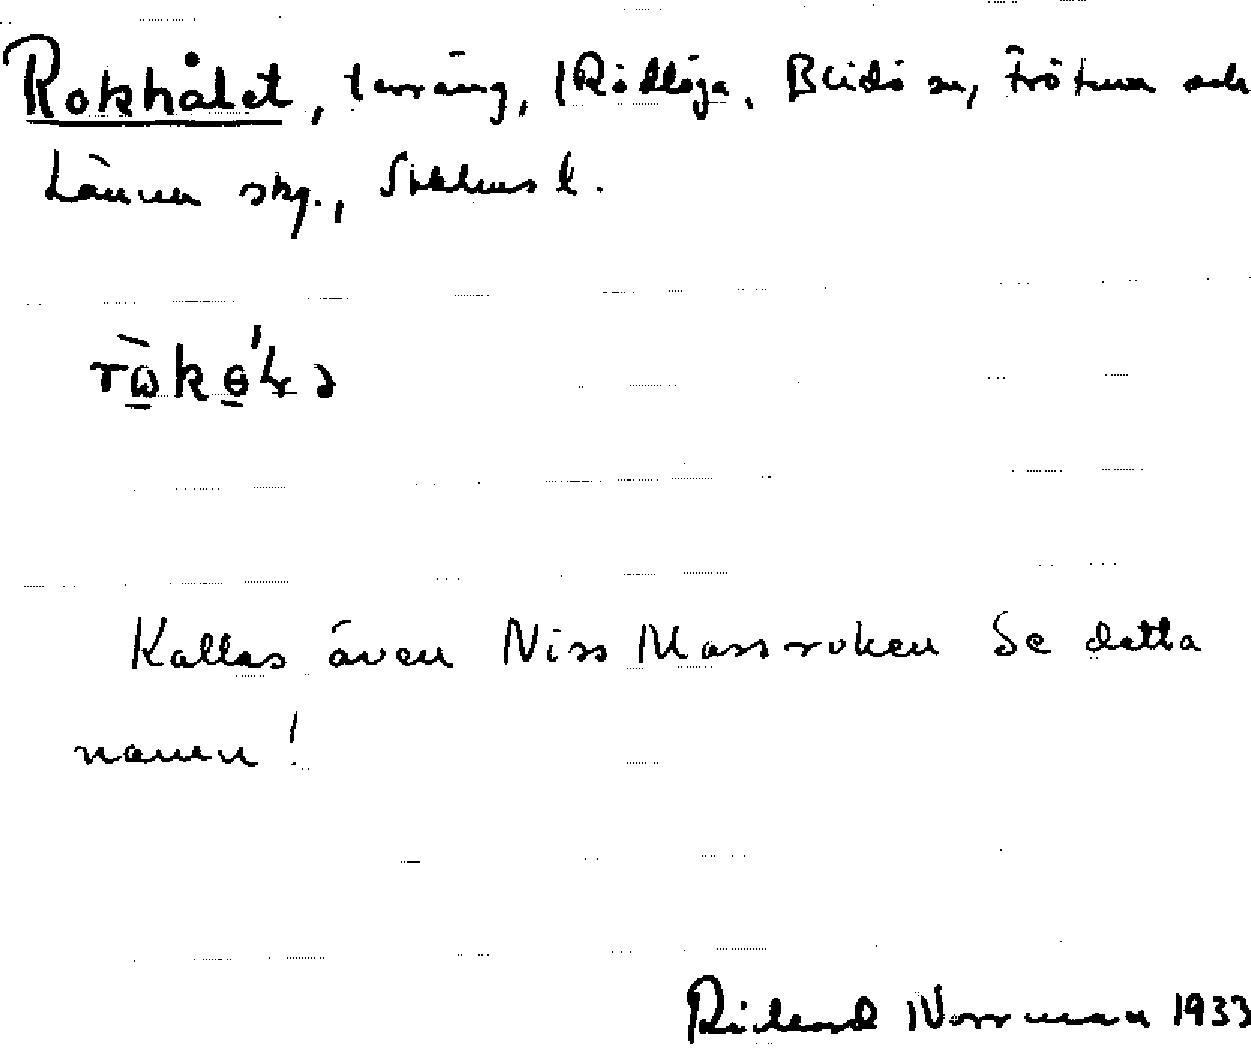 Rokhålet, terräng, Rödlöga, Blidö sn, Frötuna och
Länna skg., Sthlms l.
Kallas även Niss Massroken Se detta
namn!
Rickard Norrman 1933